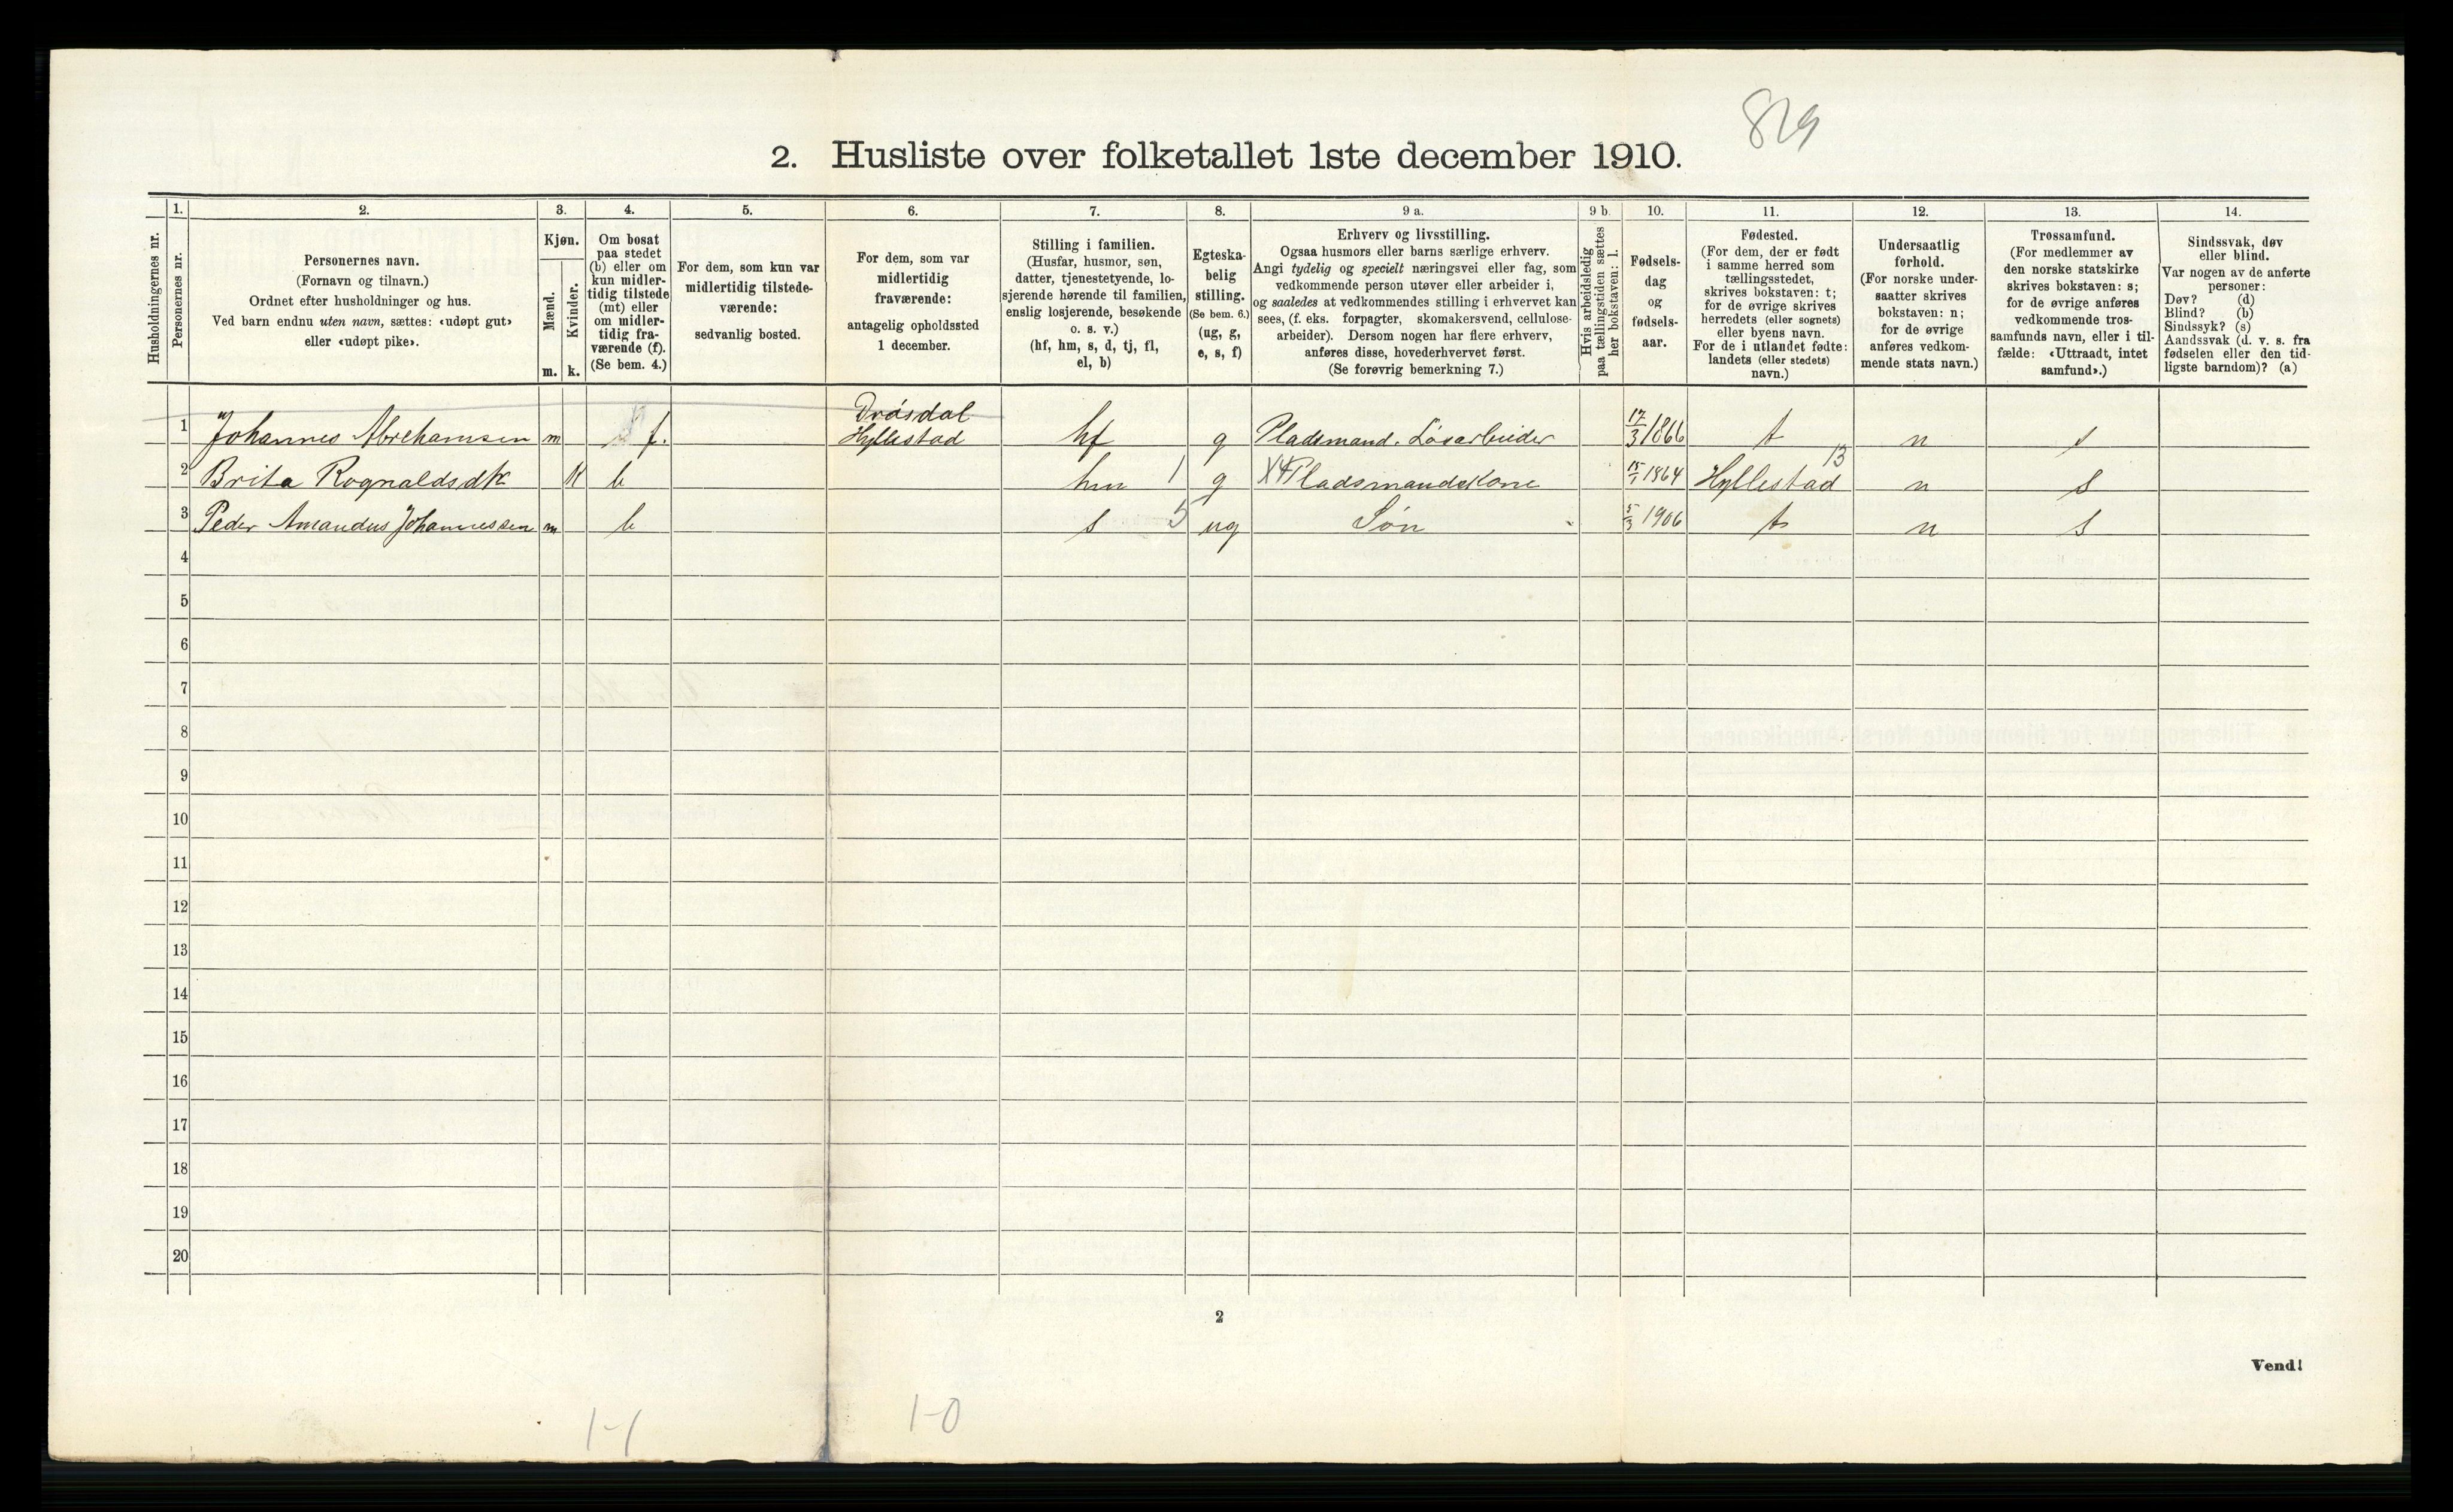 829
2. Husliste over folketallet 1ste december 1910.
Husholdningernes nr.
1.
Personernes nr.
2.
Personernes navn.
(Fornavn og tilnavn.)
Ordnet efter husholdninger og hus.
Ved barn endnu uten navn, sættes: «udøpt gut»
eller «udøpt pike».
3.
Kjøn.
Mænd.
Kvinder.
m. k.
4.
Om bosat
paa stedet
(b) eller om
kun midler-
tidig tilstede
(mt) eller
om midler-
tidig fra-
værende (f).
(Se bem. 4.)
5.
For dem, som kun var
midlertidig tilstede-
værende:
sedvanlig bosted.
6.
For dem, som var
midlertidig
fraværende:
antagelig opholdssted
1 december.
7.
Stilling i familien.
(Husfar, husmor, søn,
datter, tjenestetyende, lo-
sjerende hørende til familien,
enslig losjerende, besøkende
o. s. v.)
(hf, hm, s, d, tj, fl,
el, b)
8.
Egteska-
belig
stilling.
(Se bem. 6.)
(ug, g,
e, s, f)
9 a.
Erhverv og livsstilling.
Ogsaa husmors eller barns særlige erhverv.
Angi tydelig og specielt næringsvei eller fag, som
vedkommende person utøver eller arbeider i,
og saaledes at vedkommendes stilling i erhvervet kan
sees, (f. eks. forpagter, skomakersvend, cellulose-
arbeider). Dersom nogen har flere erhverv,
anføres disse, hovederhvervet først.
(Se forøvrig bemerkning 7.)
9 b.
Hvis arbeidsledig
paa tællingstiden sættes
her bokstaven: l.
10.
Fødsels-
dag
og
fødsels-
aar.
11.
Fødested.
(For dem, der er født
i samme herred som
tællingsstedet,
skrives bokstaven: t;
for de øvrige skrives
herredets (eller sognets)
eller byens navn.
For de i utlandet fødte:
landets (eller stedets)
navn.)
12.
Undersaatlig
forhold.
(For norske under-
saatter skrives
bokstaven: n;
for de øvrige
anføres vedkom-
mende stats navn.)
13.
Trossamfund.
(For medlemmer av
den norske statskirke
skrives bokstaven: s;
for de øvrige anføres
vedkommende tros-
samfunds navn, eller i til-
fælde: «Uttraadt, intet
samfund».)
14.
Sindssvak, døv
eller blind.
Var nogen av de anførte
personer:
Døv? (d)
Blind? (b)
Sindssyk? (s)
Aandssvak (d. v. s. fra
fødselen eller den tid-
ligste barndom)? (a)
1 Johannes Abrehamsen m f. Drøsdal Hyllestad hf g Pladsmand. Løsarbeider 17/3 1866 t n s
2 Brita Rognaldsdtr K b hm 1 g Pladsmandskone 15/1 1864 Hyllestad 13 n s
3 Peder Amandus Johannessen m b s 5 ug Søn 5/3 1906 t n s
4
5
6
7
8
9
10
11
12
13
14
15
16
17
18
19
20
2
Vend!
1-1
1-0